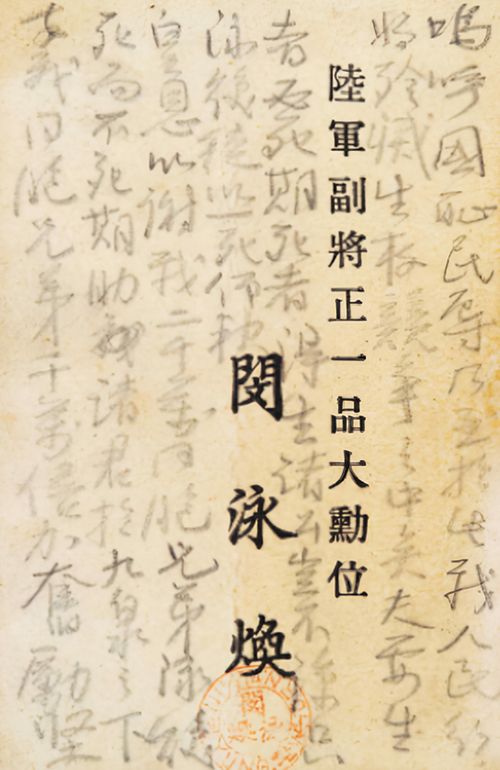 嗚呼國恥民辱乃至於此我人民行
將殄滅生存競爭之中矣夫要生
陸軍副將正一品大勳位
者必死期死者得生諸公豈不諒只
泳煥徒以一死仰報
閔泳煥
皇恩以謝我二千萬同胞兄弟泳煥
死而不死期助諸君於九泉之下
幸我同胞兄弟千萬倍加奮勵堅